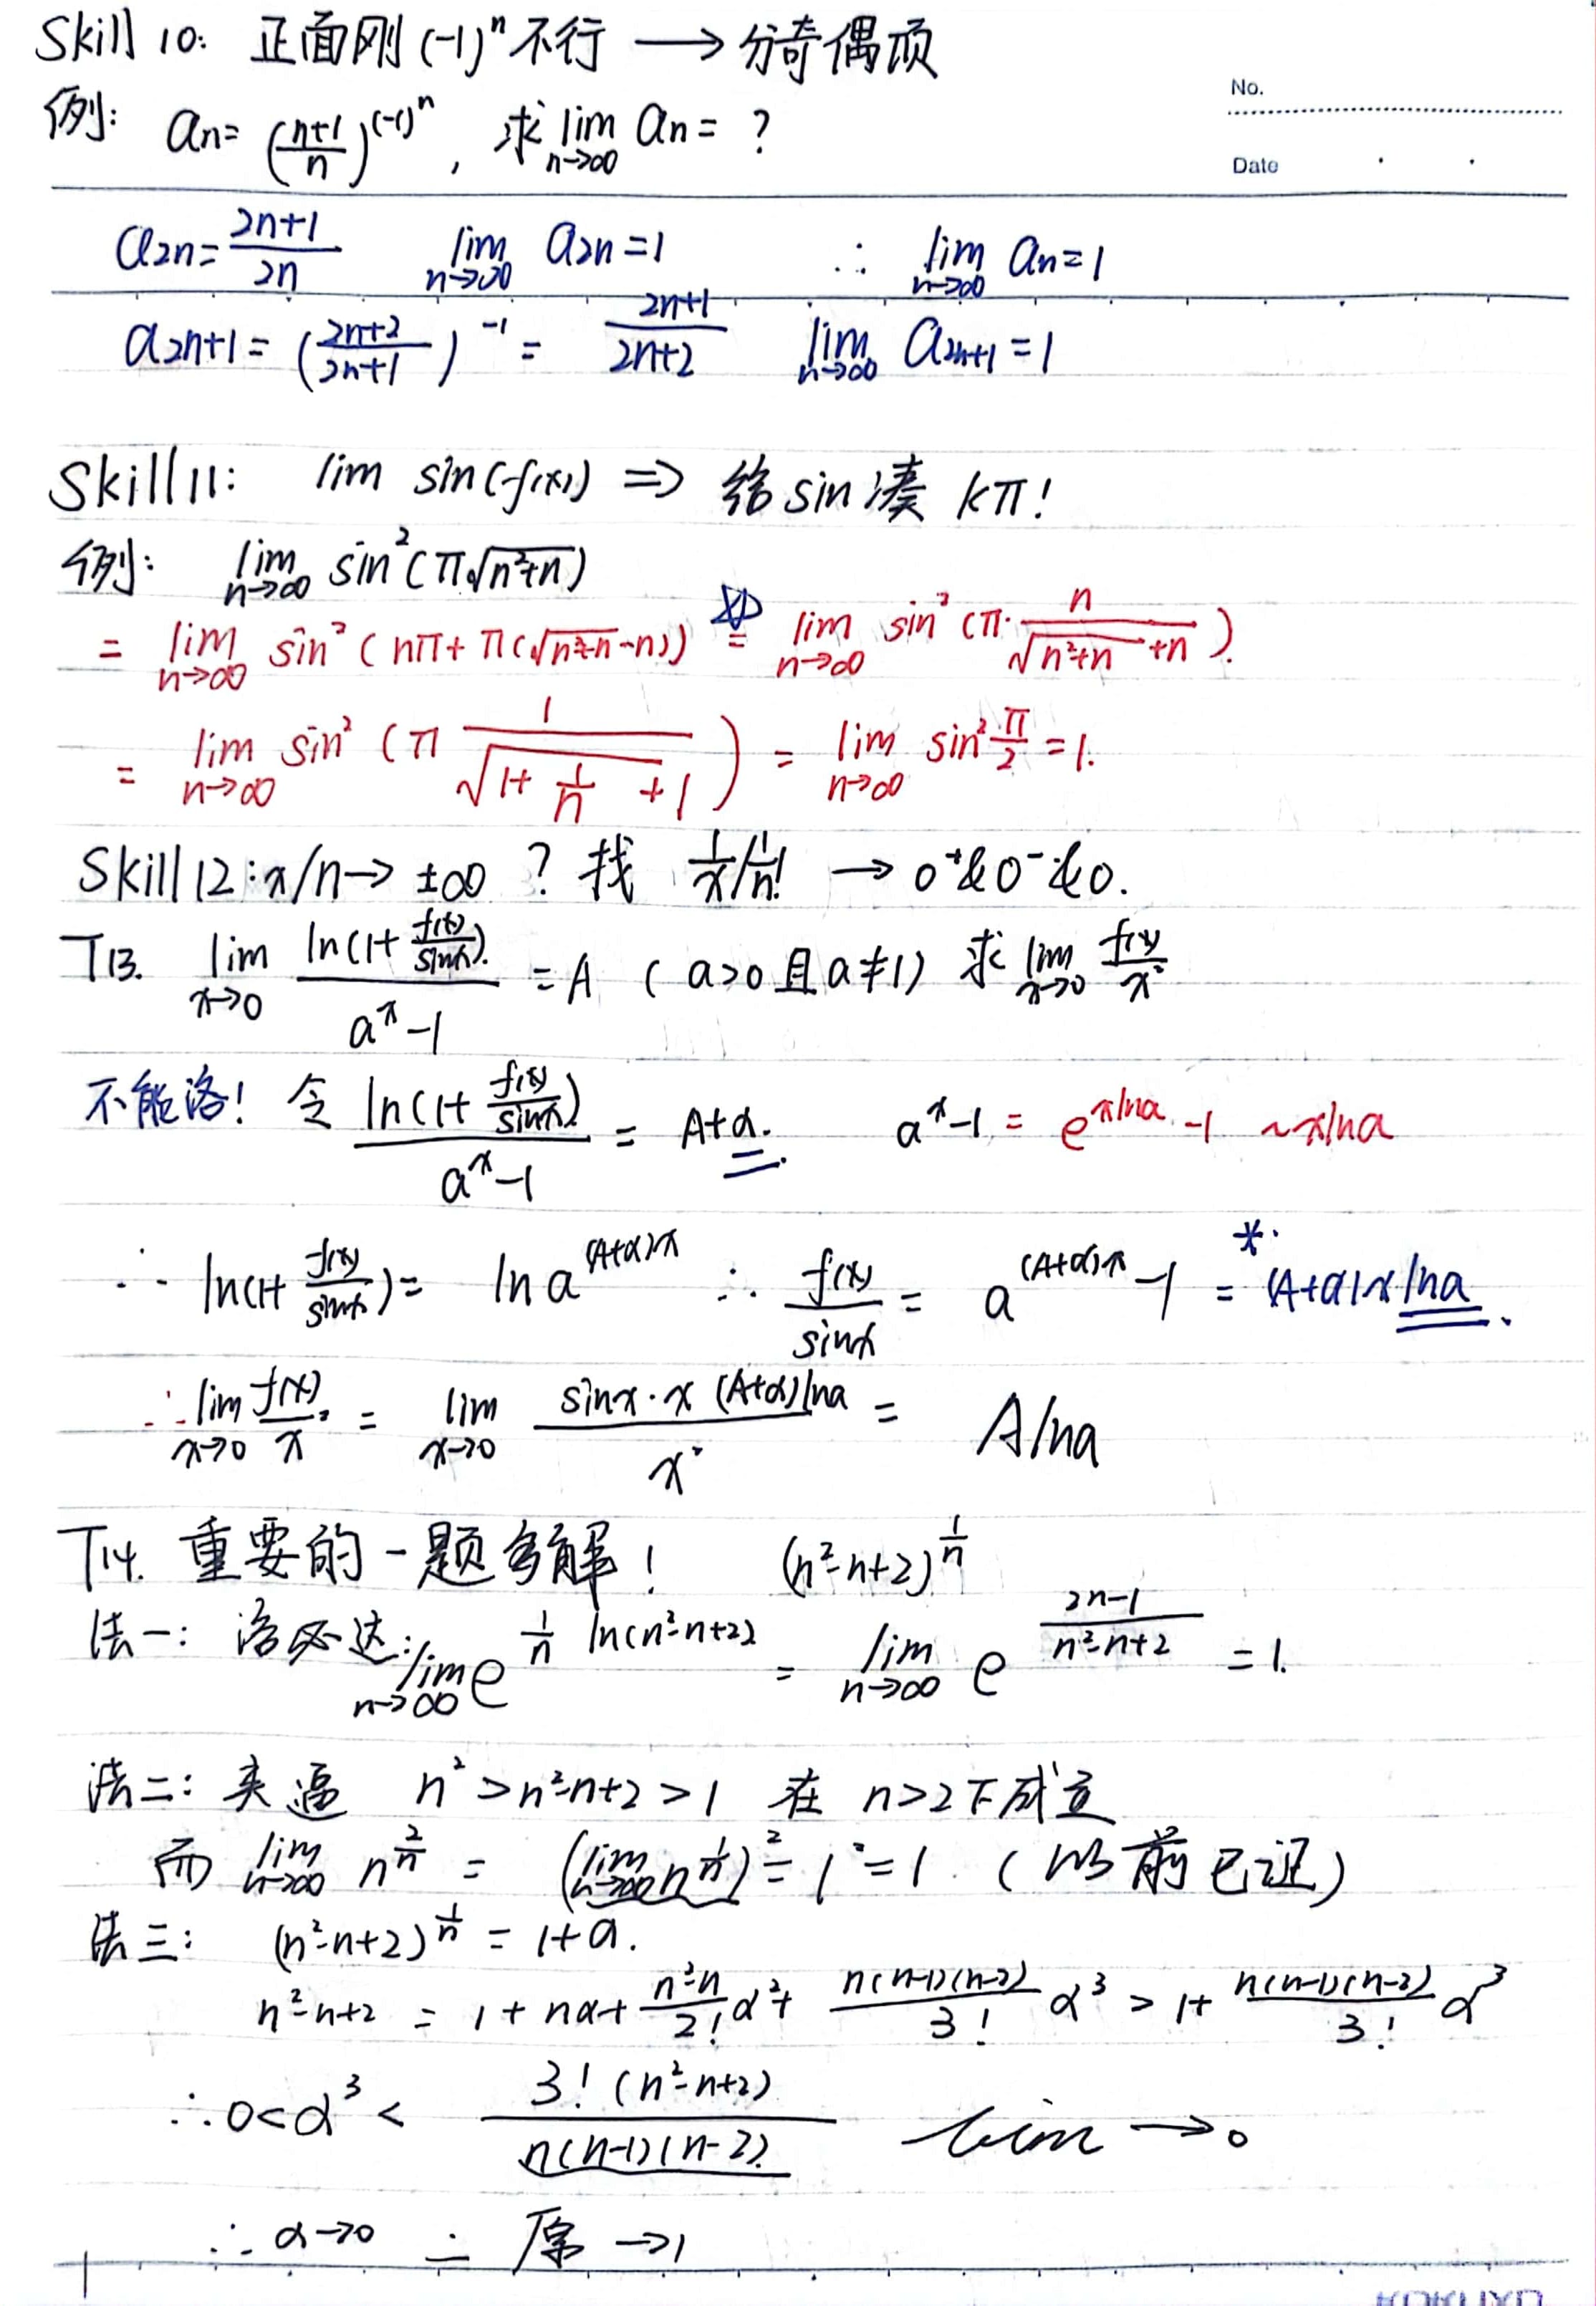 Skill 10: 正面刚 (-1)ⁿ 不行 → 分奇偶项
No.
例: aₙ= ((n+1)/n)^((-1)ⁿ) , 求 lim_{n→∞} aₙ= ?
Date
a₂ₙ= (2n+1)/(2n) lim_{n→∞} a₂ₙ=1 ∴ lim_{n→∞} aₙ=1
a₂ₙ₊₁= ((2n+2)/(2n+1))⁻¹ = (2n+1)/(2n+2) lim_{n→∞} a₂ₙ₊₁=1
Skill 11: lim sin(f(x)) ⇒ 给 sin 凑 kπ!
例: lim_{n→∞} sin²(π√(n²+n))
= lim_{n→∞} sin²(nπ+π(√(n²+n)-n)) = lim_{n→∞} sin²(π·n/(√(n²+n)+n)).
= lim_{n→∞} sin²(π 1/(√(1+1/n)+1)) = lim_{n→∞} sin² π/2 =1.
Skill 12: x/n→ ±∞ ? 找 1/x / 1/n! → 0⁺&0⁻&0.
T13. lim_{x→0} ln(1+f(x)/sinx)/(aˣ-1) =A (a>0且a≠1) 求 lim_{x→0} f(x)/x²
不能洛! 令 ln(1+f(x)/sinx)/(aˣ-1) = A+α. aˣ-1 = e^(xlna) -1 ~xlna
∴ ln(1+f(x)/sinx)= ln a^((A+α)x) ∴ f(x)/sinx = a^((A+α)x) -1 =* (A+α)x lna.
∴ lim_{x→0} f(x)/x² = lim_{x→0} sinx·x(A+α)lna/x² = Alna
T14. 重要的一题多解! (n²-n+2)^(1/n)
法一: 洛必达: lim_{n→∞} e^(1/n ln(n²-n+2)) = lim_{n→∞} e^((2n-1)/(n²-n+2)) =1.
法二: 夹逼 n²>n²-n+2>1 在 n>2下成立
而 lim_{n→∞} n^(2/n) = (lim_{n→∞} n^(1/n))² = 1²=1. (以前已证)
法三: (n²-n+2)^(1/n) = 1+α.
n²-n+2 = 1+nα+ (n²-n)/2! α²+ n(n-1)(n-2)/3! α³ > 1+ n(n-1)(n-2)/3! α³
∴0<α³< 3!(n²-n+2)/(n(n-1)(n-2)) lim →0
∴ α→0 ∴ 原→1